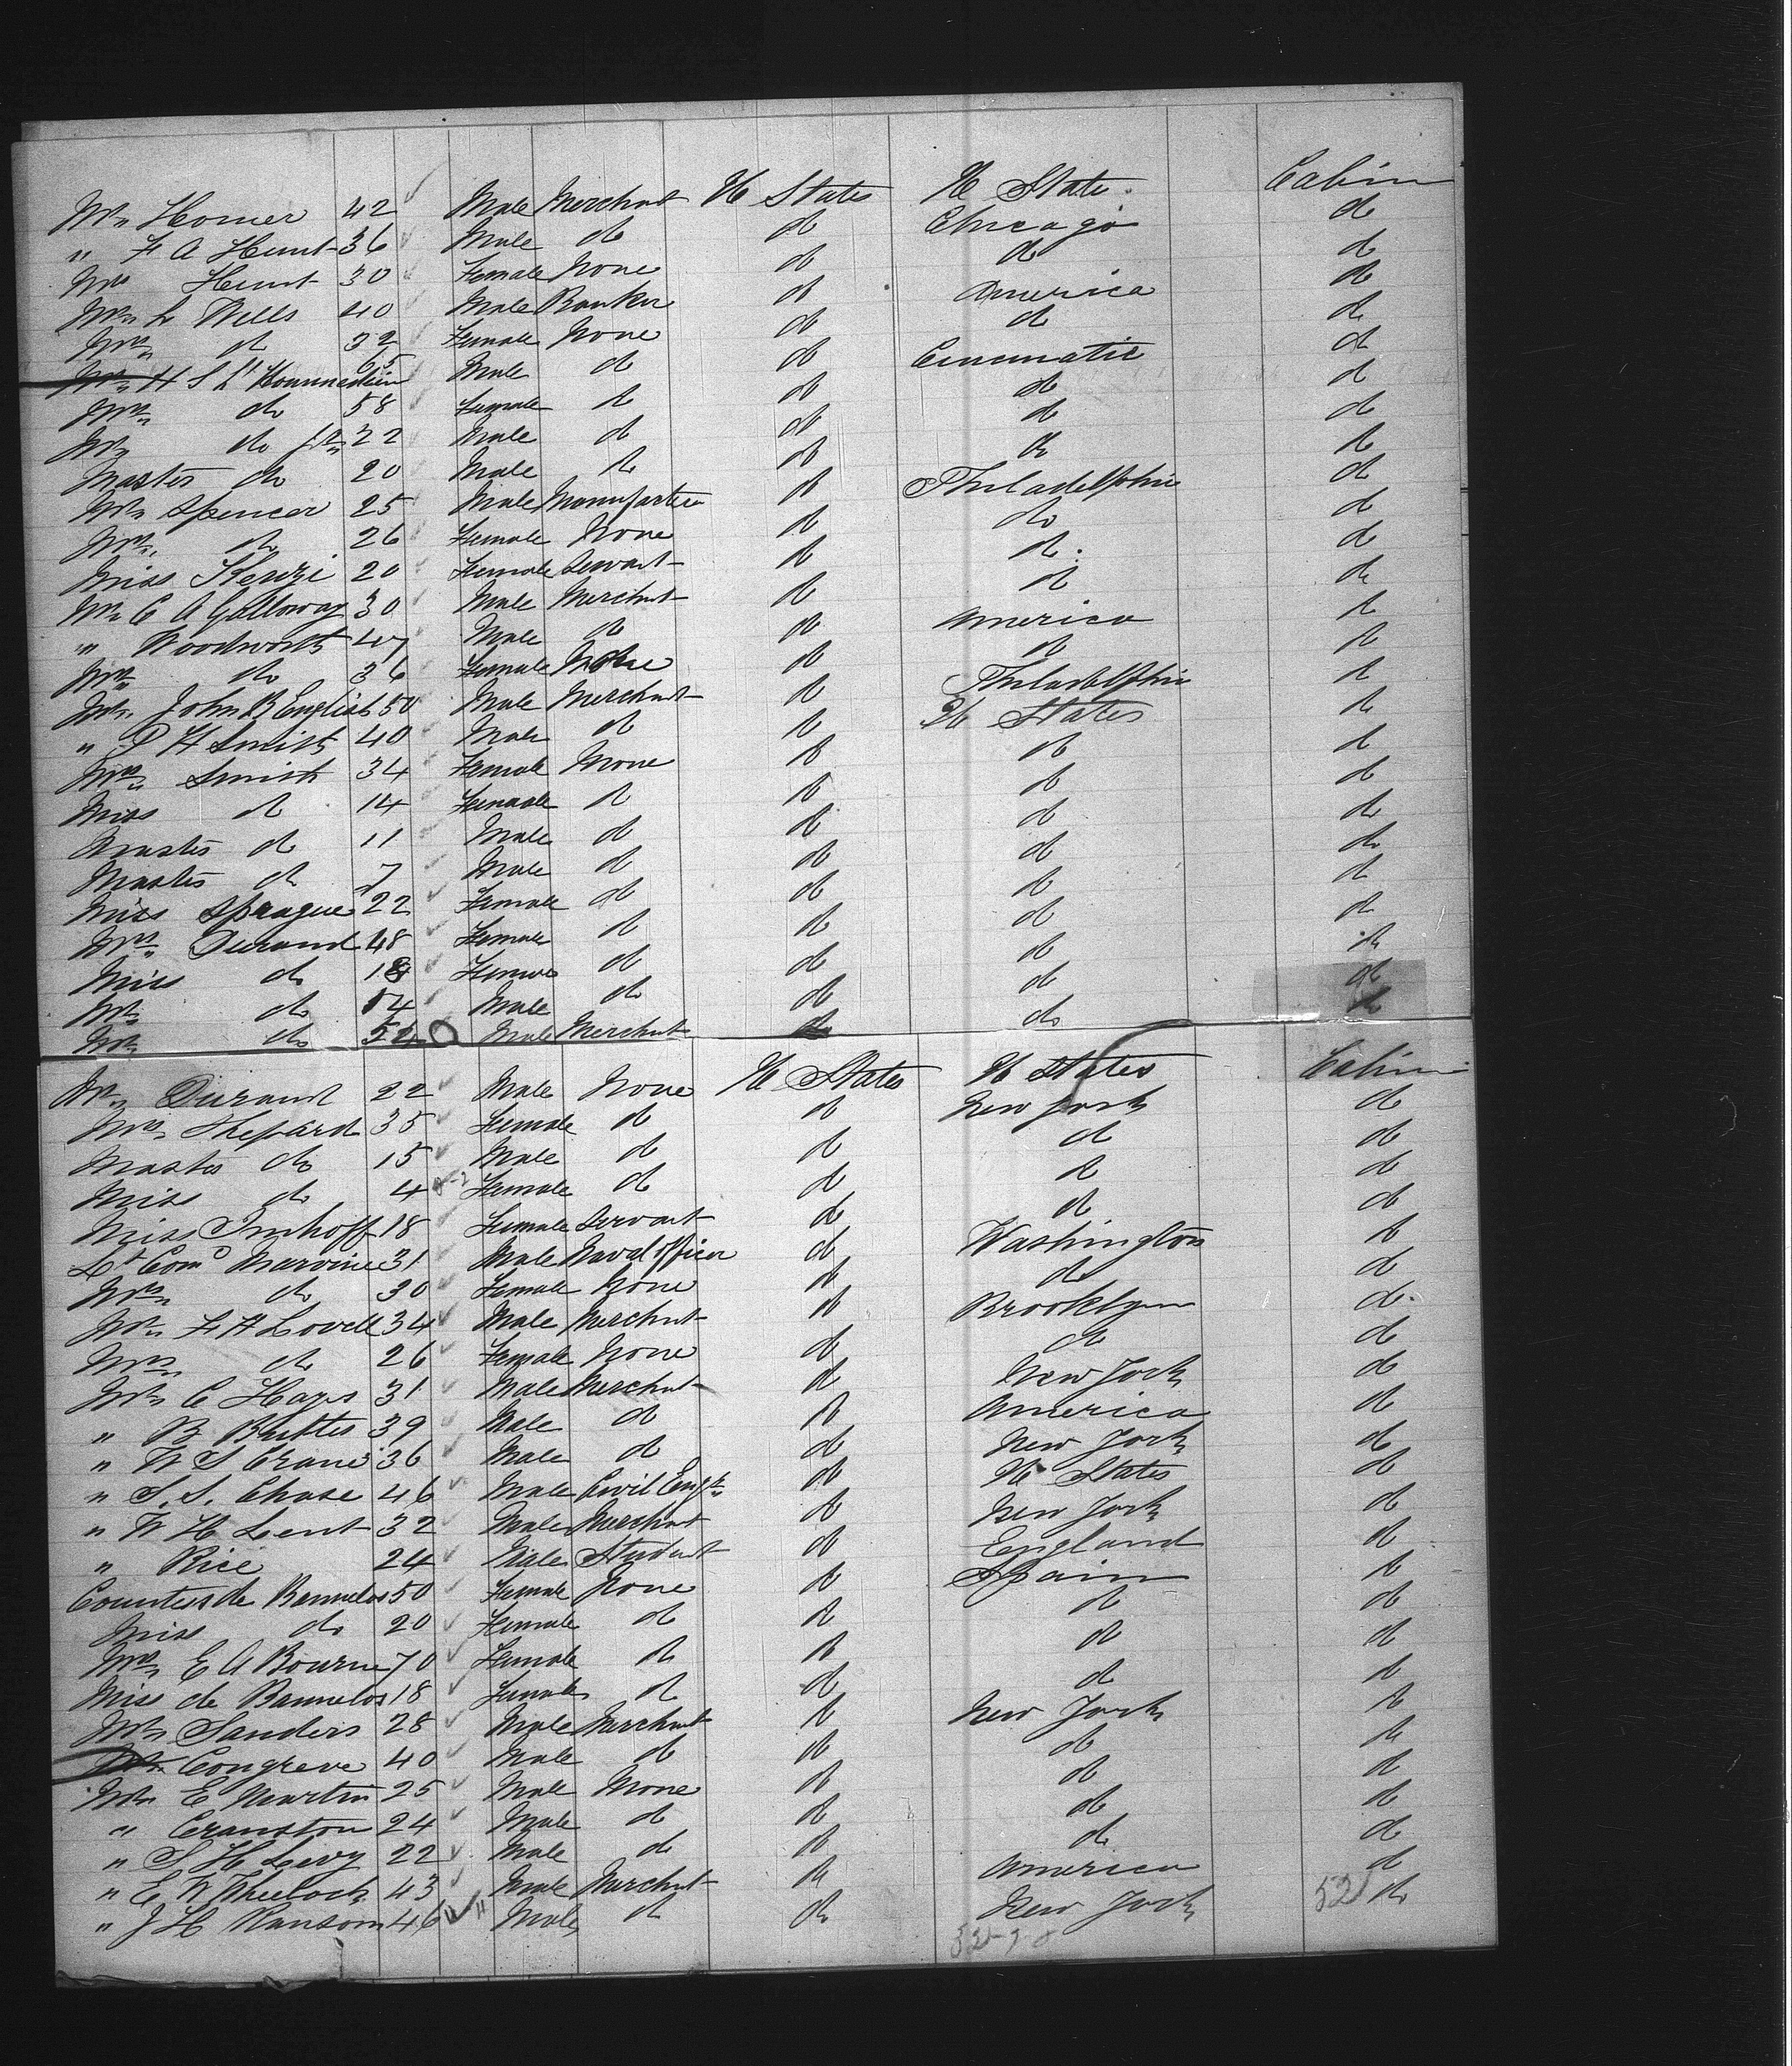 Mr Homer 42 Male Merchant U States U State. Cabin
" F A Hunt 36 Male do do Chicago do
Mrs Hunt 30 Female None do do do
Mr L Wells 40 Male Banker do America do
Mrs do 32 Female None do do do
Mr H S L'Hommedieu 65 Male do do Cincinnatie do
Mrs do 58 Female do do do do
Mr do Jr 22 Male do do do do
Master do 20 Male do do do do
Mr Spencer 25 Male do Philadelphia do
Mrs do 26 Female None do do do
Miss Kenzi 20 Female Servant do do do
Mr C A Galloway 30 Male Merchant do do do
" Woodworth 47 Male do do America do
Mrs do 36 Female None do do do
Mr John B English 50 Male Merchant do Philadelphia do
" P H Smith 40 Male do do U States do
Mrs Smith 34 Female None do do do
Miss do 14 Female do do do do
Master do 11 Male do do do do
Master do 7 Male do do do do
Miss Sprague 22 Female do do do do
Mrs Durand 48 Female do do do do
Miss do 18 Female do do do do
Mr do 14 Male do do do do
Mr do 52 Male Merchant do do do
Mr Durant 22 Male None U States U States Cabin
Mrs Shepard 35 Female do do New York do
Master do 15 Male do do do do
Miss do 4 Female do do do do
Miss Imhoff 18 Female Servant do do do
Lt Com Marvine 31 Male Naval Officer do Washington do
Mrs do 30 Female None do do do
Mr F H Lovell 34 Male Merchant do Brooklyn do
Mrs do 26 Female None do do do
Mr C Hays 31 Male Merchant do New York do
" B 39 Male do do America do
" W S Crane 36 Male do do New York do
" S. S. Chase 46 Male Civil Engr do U States do
" W H Lent 32 Male Merchant do New York do
" Rice 24 Male Student do England do
Countess de Banuelos 50 Female None do Spain do
Miss do 20 Female do do do do
Mrs E A Bourne 70 Female do do do do
Miss de Banuelos 18 Female do do do do
Mr Sanders 28 Male Merchant do New York do
Mr Congreve 40 Male do do do do
Mr E Martin 25 Male None do do do
" Cranston 24 Male do do do do
" S H Levy 22 Male do do do do
" E W Wheelock 43 Male Merchant do America do
" J H Ransom 46 Male do do New York do
52